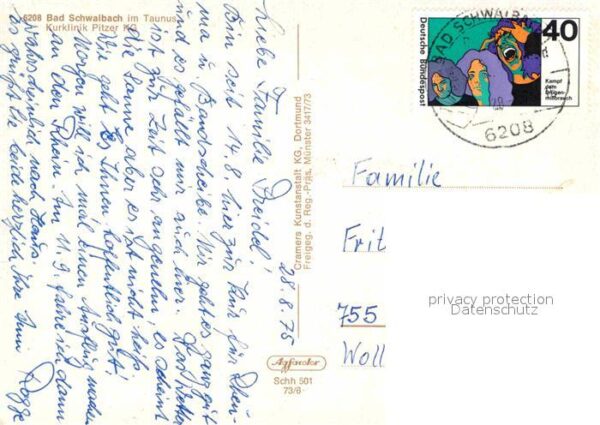 6208 Bad Schwalbach im Taunus
Kurklinik Pitzer KG
28.8.75
Liebe Familie Dreidel!
Bin seit 14.8. hier zur Kur für Rheu-
ma u. Bandscheibe. Mir geht es ganz gut
und es gefällt mir auch hier. Das Wetter
ist zur Zeit sehr angenehm, es scheint
die Sonne aber es ist nicht heiß.
Wie geht es Ihnen, hoffentlich gut.
Morgen will ich mal einen Ausflug machen
an den Rhein. Am 11.9. fahre ich dann
wahrscheinlich nach Hause.
Es grüßt Sie beide herzlich Ihre
Cramers Kunstanstalt KG, Dortmund
Freigeg. d. Reg.-Präs. Münster 3417/73
Agfacolor
Schh 501
73/6
Deutsche Bundespost
40
Kampf
dem
Drogen-
mißbrauch
BAD SCHWALBACH
6208
Familie
Frit
755
Woll
privacy protection
Datenschutz